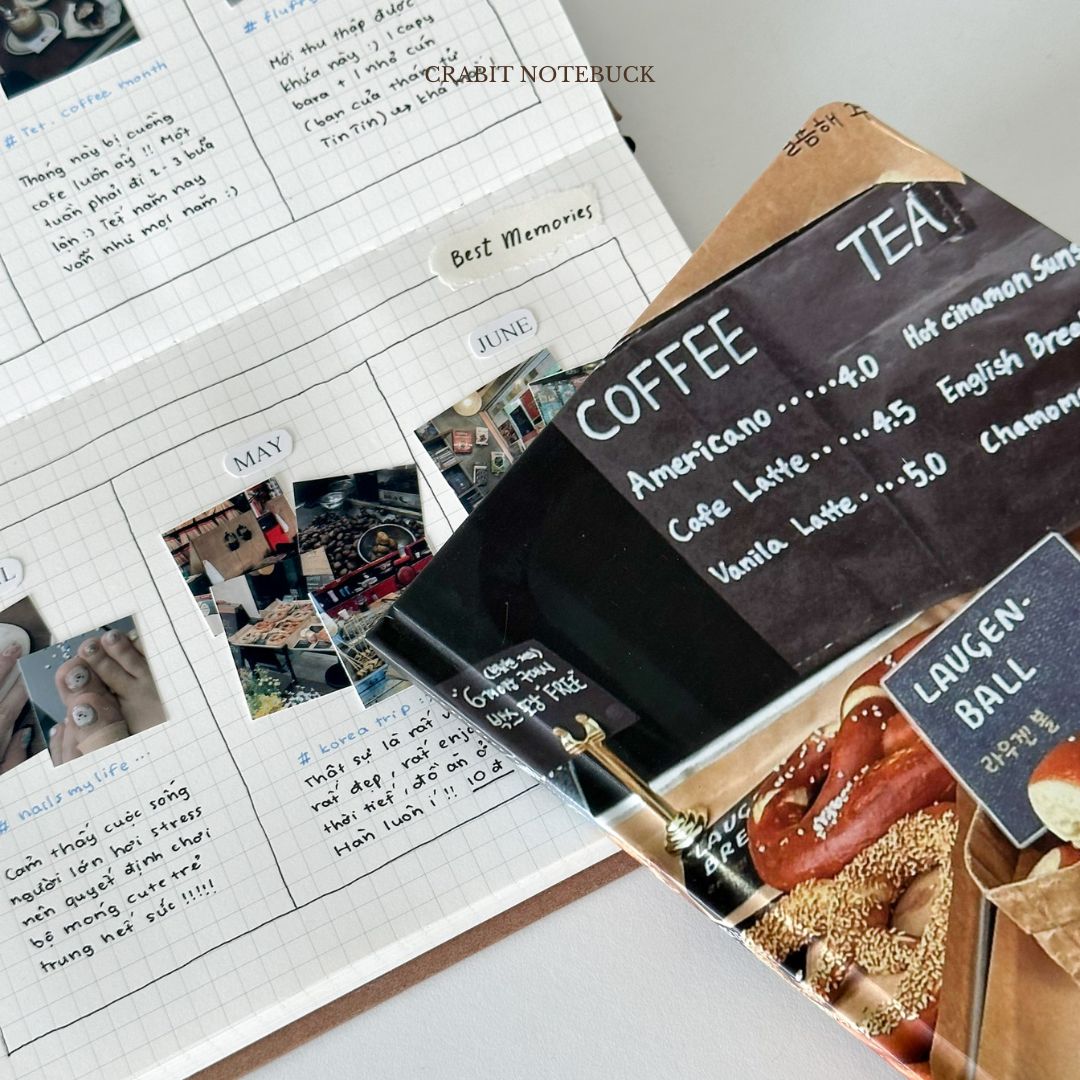 CRABIT NOTEBUCK
# Tet. coffee month
Tháng này bị cuồng
cafe luôn ấy !! Một
tuần phải đi 2-3 bữa
lận :) Tết năm nay
vẫn như mọi năm :)
# fluffy
Mới thu thập được
khứa này :) 1 capy
bara + 1 nhỏ cún
(bạn của
TinTin)
Best Memories
MAY
JUNE
# nails my life...
Cảm thấy cuộc sống
người lớn hơi stress
nên quyết định chơi
bộ móng cute trẻ
trung hết sức !!!!!
# korea trip :)
Thật sự là rất
rất đẹp, rất
thời tiết, đồ ăn ở
Hàn luôn í !! 10đ
TEA
Hot cinamon Suns
English Break
Chamom
COFFEE
Americano .....4.0
Cafe Latte.....4.5
Vanila Latte....5.0
FREE
LAUGEN-
BALL
라우겐 볼
LAUG
BRE